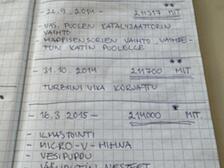 - 26.9. 2014 - 211317 MIT
- VAS. PUOLEN KATALYSAATTORIN
VAIHTO
- HAPPISENSORIEN VAIHTO
TUN KATIN PUOLELLE
- 31.10 2014 211700 MIT
- TURBIINI VIKA KORJATTU
- 16.3 2015 - 214000 MIT
- ILMASTOINTI
- MICRO-V-HIHNA
- VESIPUPPU
NESTEET